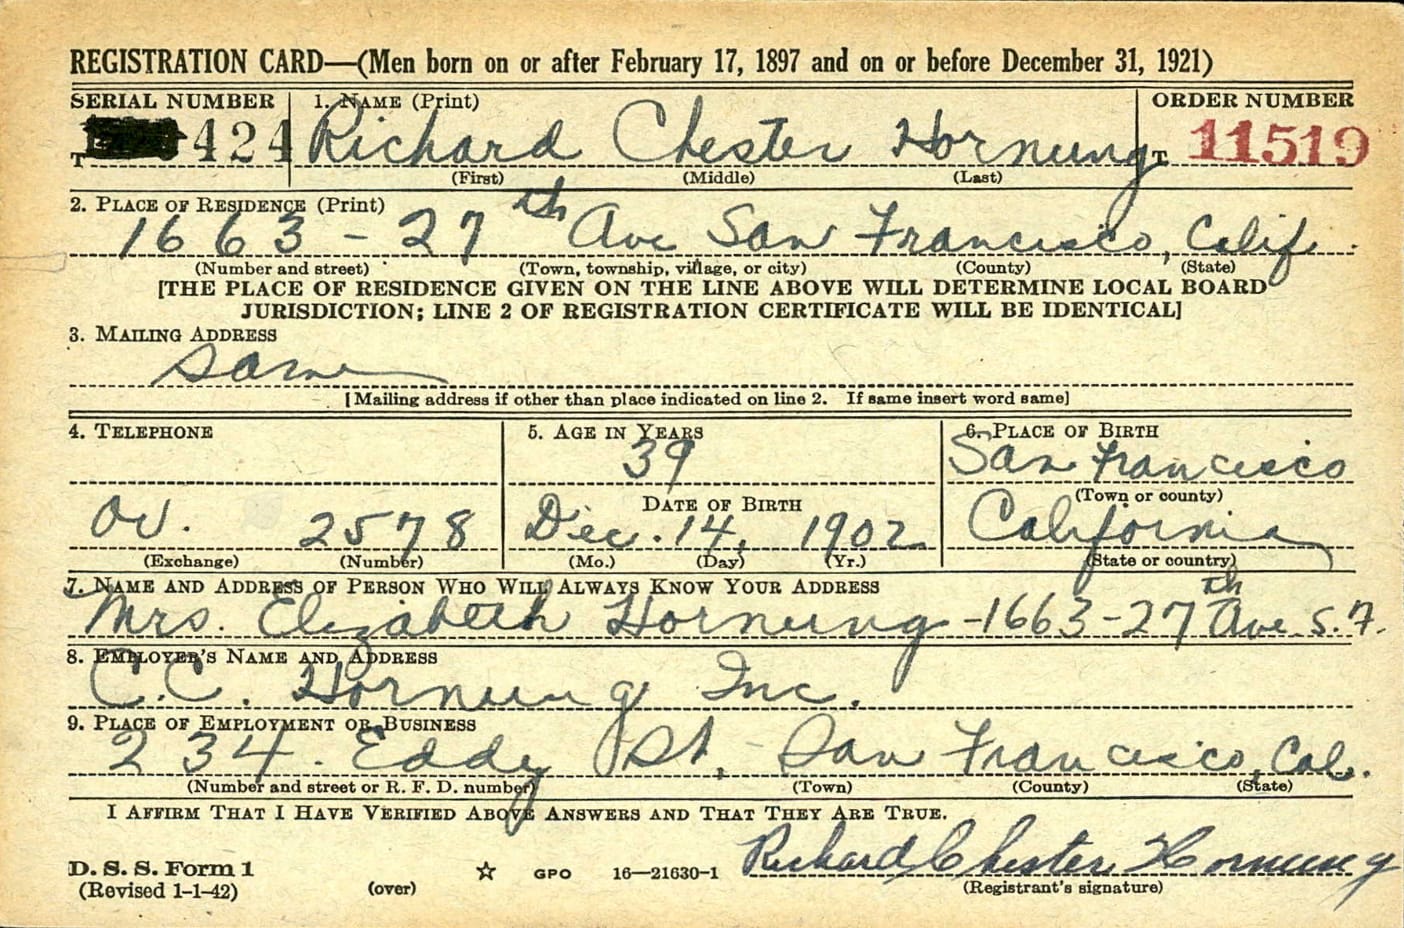 REGISTRATION CARD—(Men born on or after February 17, 1897 and on or before December 31, 1921)
SERIAL NUMBER 1. NAME (Print) ORDER NUMBER
T 424 Richard Chester Hornung T 11519
(First) (Middle) (Last)
2. PLACE OF RESIDENCE (Print)
1663 - 27th Ave San Francisco, Calif.
(Number and street) (Town, township, village, or city) (County) (State)
[THE PLACE OF RESIDENCE GIVEN ON THE LINE ABOVE WILL DETERMINE LOCAL BOARD
JURISDICTION; LINE 2 OF REGISTRATION CERTIFICATE WILL BE IDENTICAL]
3. MAILING ADDRESS
Same
[Mailing address if other than place indicated on line 2. If same insert word same]
4. TELEPHONE 5. AGE IN YEARS 6. PLACE OF BIRTH
39 San Francisco
DATE OF BIRTH (Town or county)
OV. 2578 Dec. 14, 1902 California
(Exchange) (Number) (Mo.) (Day) (Yr.) (State or country)
7. NAME AND ADDRESS OF PERSON WHO WILL ALWAYS KNOW YOUR ADDRESS
Mrs. Elizabeth Hornung -1663-27th Ave S.F.
8. EMPLOYER'S NAME AND ADDRESS
C.C. Hornung Inc.
9. PLACE OF EMPLOYMENT OR BUSINESS
234 Eddy St, - San Francisco, Cal.
(Number and street or R. F. D. number) (Town) (County) (State)
I AFFIRM THAT I HAVE VERIFIED ABOVE ANSWERS AND THAT THEY ARE TRUE.
Richard Chester Hornung
D. S. S. Form 1
(Revised 1-1-42) (over) ☆ GPO 16—21630-1 (Registrant's signature)